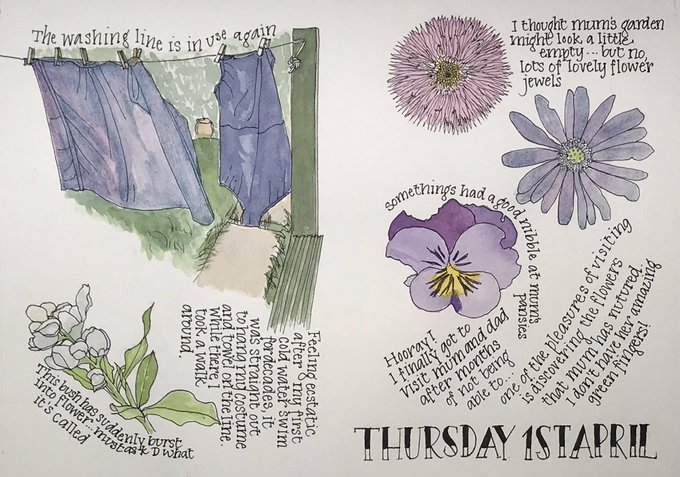 The washing line is in use again
I thought mum's garden
might look a little
empty... but no,
lots of lovely flower
jewels
somethings had a good nibble at mum's pansies
Feeling ecstatic
after my first
cold water swim
for decades, it
was straight out
to hang costume
and towel on the line.
while there I
took a walk
around.
This bush has suddenly burst
into flower... must ask D what
it's called
Hooray!
I finally got to
visit mum and dad
after months
of not being
able to...
one of the pleasures of visiting
is discovering the flowers
that mum has nutured.
I don't have her amazing
green fingers!
THURSDAY 1ST APRIL